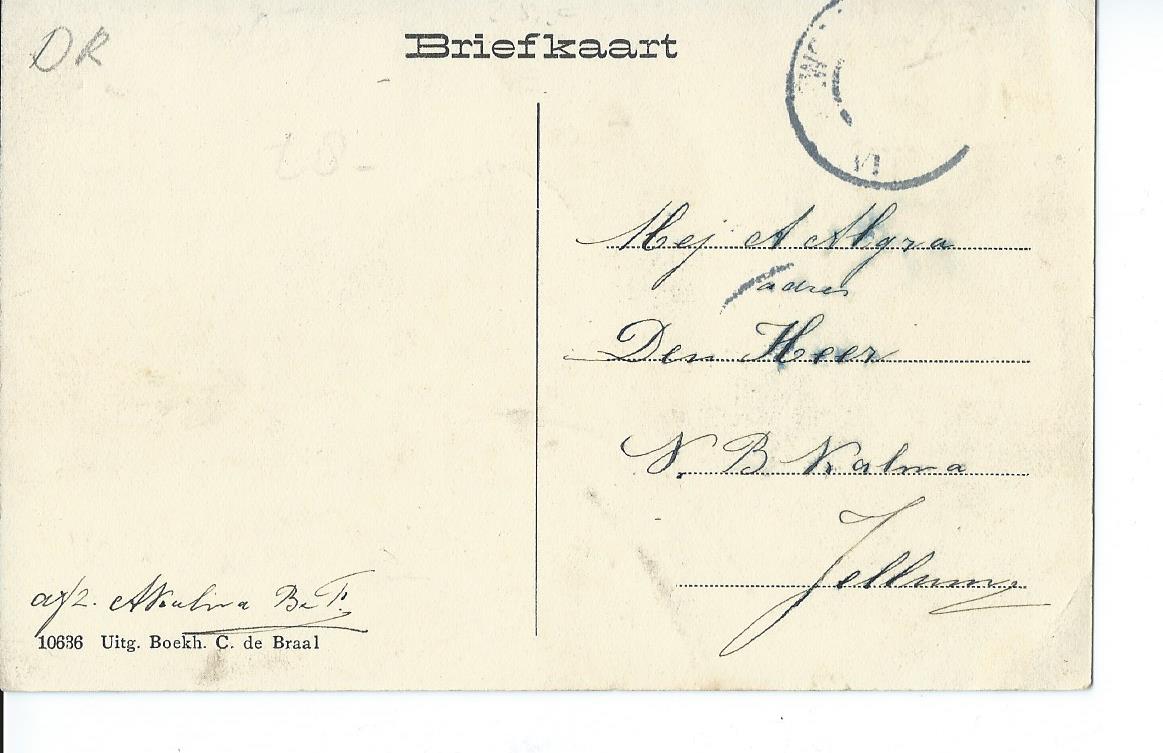 DR
Briefkaart
Mej A Algra
adres
Den Heer
N. B Kalma
Jellum
afz. A Kalma
10636 Uitg. Boekh. C. de Braal